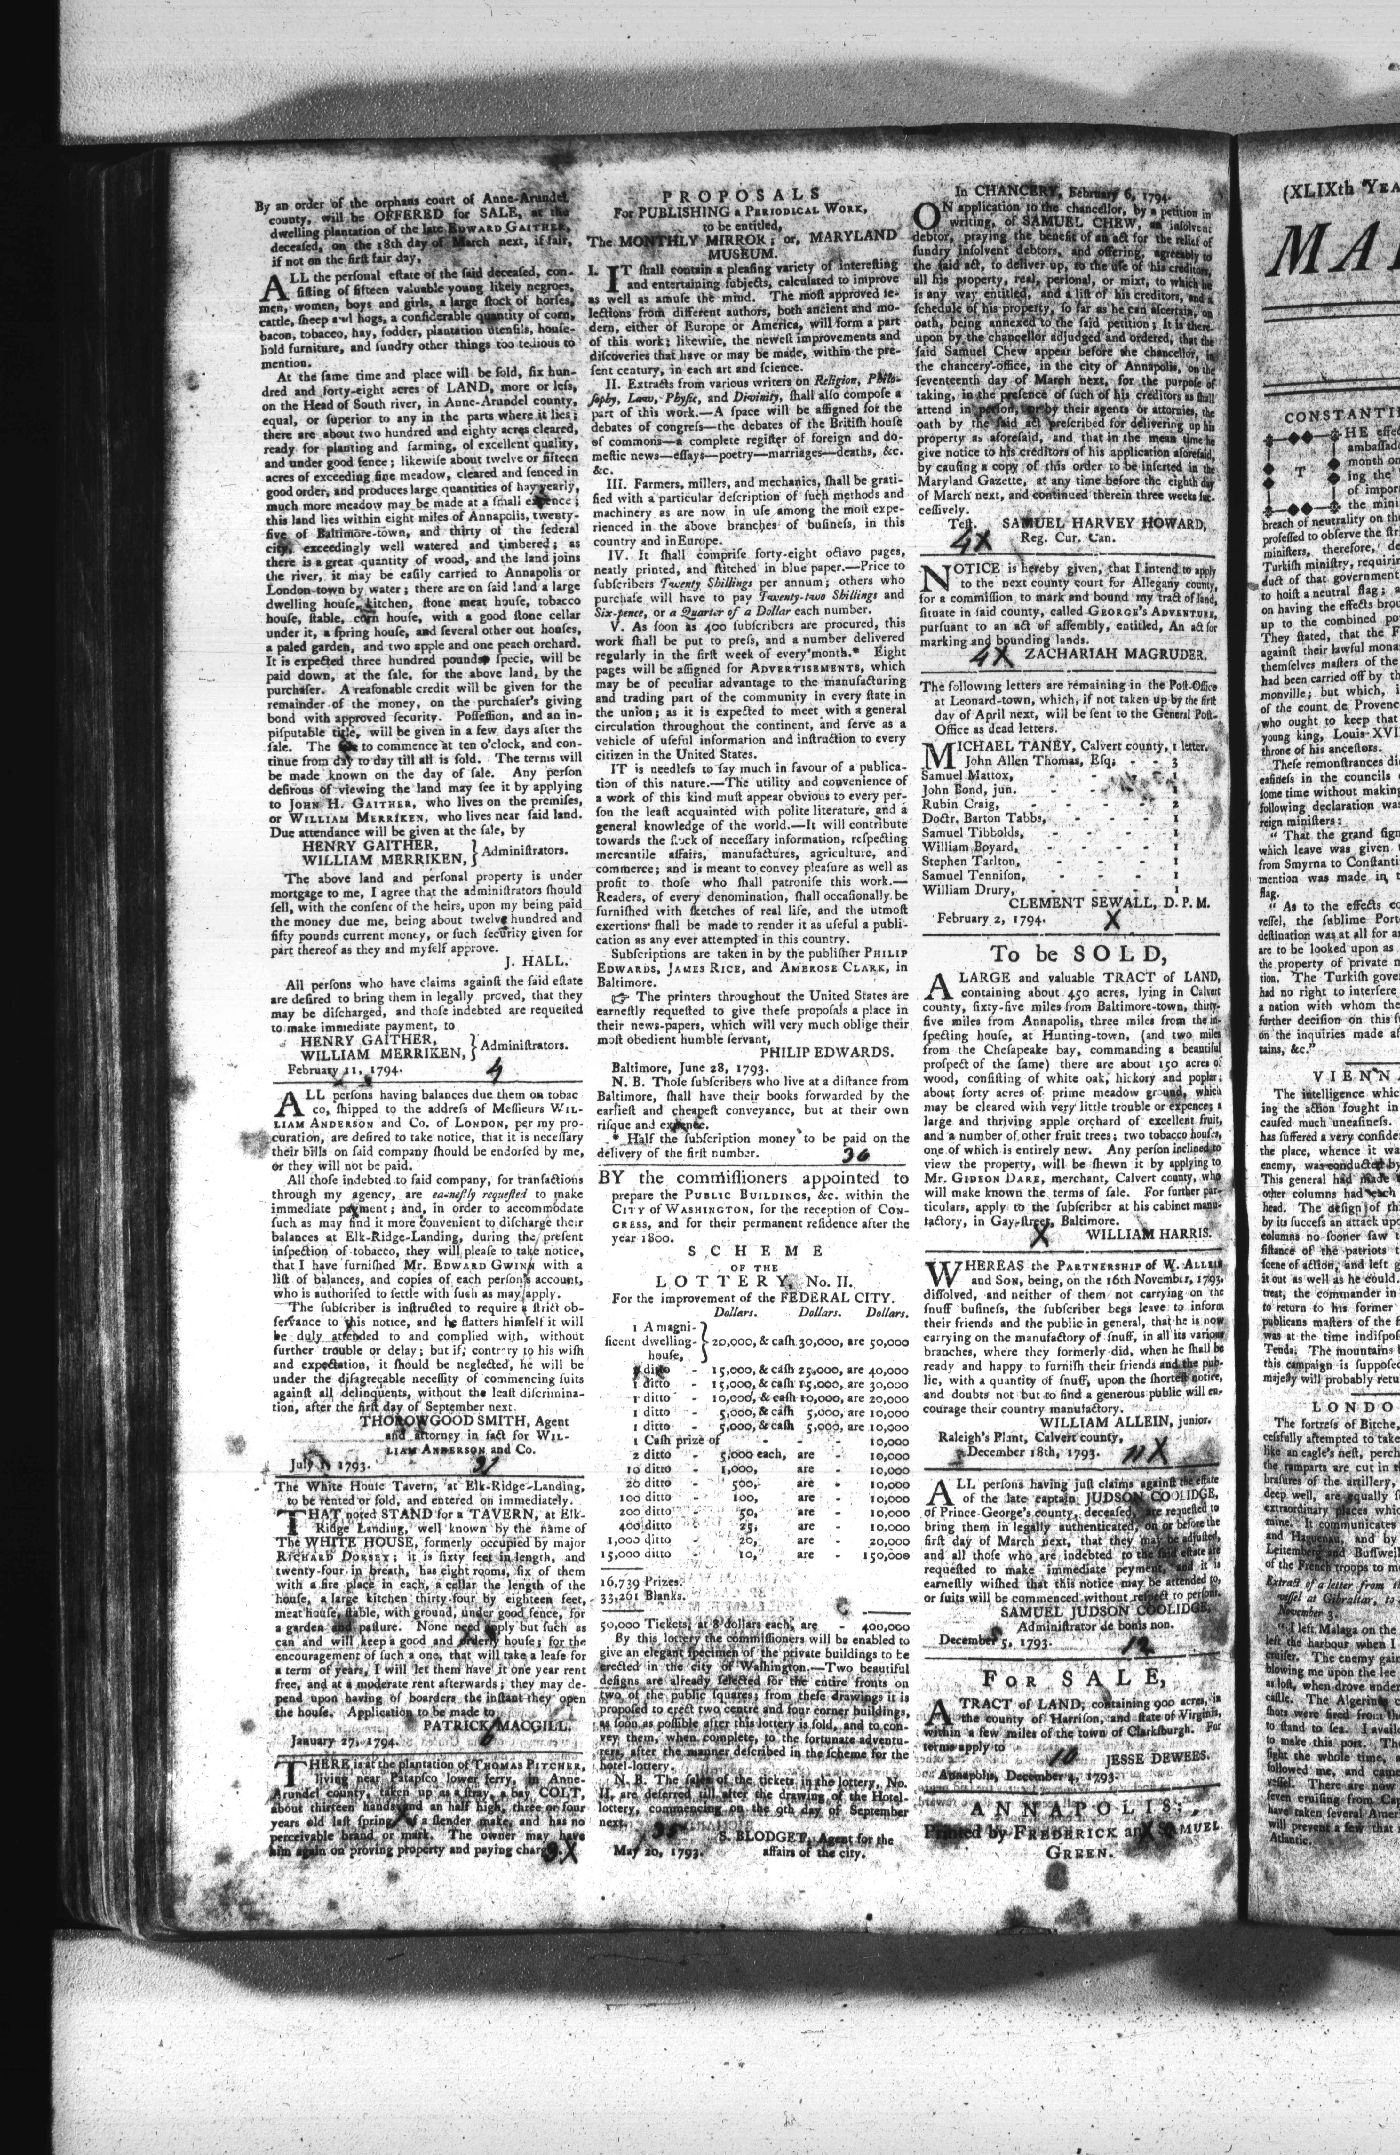 By an order of the orphans court of Anne-Arundel
county, will be OFFERED for SALE, at the
dwelling plantation of the late EDWARD GAITHER,
deceased, on the 18th day of March next, if fair,
if not on the first fair day,
ALL the personal estate of the said deceased, con-
sisting of fifteen valuable young likely negroes,
men, women, boys and girls, a large stock of horses,
cattle, sheep and hogs, a considerable quantity of corn,
bacon, tobacco, hay, fodder, plantation utensils, house-
hold furniture, and sundry other things too tedious to
mention.
At the same time and place will be sold, six hun-
dred and forty-eight acres of LAND, more or less,
on the Head of South river, in Anne-Arundel county,
equal, or superior to any in the parts where it lies;
there are about two hundred and eighty acres cleared,
ready for planting and farming, of excellent quality,
and under good fence; likewise about twelve or fifteen
acres of exceeding fine meadow, cleared and fenced in
good order, and produces large quantities of hay yearly,
much more meadow may be made at a small expence;
this land lies within eight miles of Annapolis, twenty-
five of Baltimore-town, and thirty of the federal
city, exceedingly well watered and timbered; as
there is a great quantity of wood, and the land joins
the river, it may be easily carried to Annapolis or
London-town by water; there are on said land a large
dwelling house, kitchen, stone meat house, tobacco
house, stable, corn house, with a good stone cellar
under it, a spring house, and several other out houses,
a paled garden, and two apple and one peach orchard.
It is expected three hundred pounds specie, will be
paid down, at the sale, for the above land, by the
purchaser. A reasonable credit will be given for the
remainder of the money, on the purchaser's giving
bond with approved security. Possession, and an in-
pisputable title, will be given in a few days after the
sale. The to commence at ten o'clock, and con-
tinue from day to day till all is sold. The terms will
be made known on the day of sale. Any person
desirous of viewing the land may see it by applying
to JOHN H. GAITHER, who lives on the premises,
or WILLIAM MERRIKEN, who lives near said land.
Due attendance will be given at the sale, by
HENRY GAITHER,
WILLIAM MERRIKEN, } Administrators.
The above land and personal property is under
mortgage to me, I agree that the administrators should
sell, with the consent of the heirs, upon my being paid
the money due me, being about twelve hundred and
fifty pounds current money, or such security given for
part thereof as they and myself approve.
J. HALL.
All persons who have claims against the said estate
are desired to bring them in legally proved, that they
may be discharged, and those indebted are requested
to make immediate payment, to
HENRY GAITHER,
WILLIAM MERRIKEN, } Administrators.
February 11, 1794. 4
ALL persons having balances due them on tobac
co, shipped to the address of Messieurs WIL-
LIAM ANDERSON and Co. of LONDON, per my pro-
curation, are desired to take notice, that it is necessary
their bills on said company should be endorsed by me,
or they will not be paid.
All those indebted to said company, for transactions
through my agency, are earnestly requested to make
immediate payment; and, in order to accommodate
such as may find it more convenient to discharge their
balances at Elk-Ridge-Landing, during the present
inspection of tobacco, they will please to take notice,
that I have furnished Mr. EDWARD GWINN with a
list of balances, and copies of each person's account,
who is authorised to settle with such as may apply.
The subscriber is instructed to require a strict ob-
servance to this notice, and he flatters himself it will
be duly attended to and complied with, without
further trouble or delay; but if, contrary to his wish
and expectation, it should be neglected, he will be
under the disagreeable necessity of commencing suits
against all delinquents, without the least discrimina-
tion, after the first day of September next.
THOROWGOOD SMITH, Agent
and attorney in fact for WIL-
LIAM ANDERSON and Co.
July 1, 1793.
The White House Tavern, at Elk-Ridge-Landing,
to be rented or sold, and entered on immediately.
THAT noted STAND for a TAVERN, at Elk-
Ridge Landing, well known by the name of
The WHITE HOUSE, formerly occupied by major
RICHARD DORSEY; it is sixty feet in length, and
twenty-four in breath, has eight rooms, six of them
with a fire place in each, a cellar the length of the
house, a large kitchen thirty-four by eighteen feet,
meat house, stable, with ground, under good fence, for
a garden and pasture. None need apply but such as
can and will keep a good and orderly house; for the
encouragement of such a one, that will take a lease for
a term of years, I will let them have it one year rent
free, and at a moderate rent afterwards; they may de-
pend upon having of boarders the instant they open
the house. Application to be made to
PATRICK MACGILL.
January 27, 1794.
THERE is at the plantation of THOMAS PITCHER,
living near Patapsco lower ferry, in Anne-
Arundel county, taken up as a stray, a bay COLT,
about thirteen hands and an half high, three or four
years old last spring, of a slender make, and has no
perceivable brand or mark. The owner may have
him again on proving property and paying charges. 3X
PROPOSALS
For PUBLISHING a PERIODICAL WORK,
to be entitled,
The MONTHLY MIRROR; or, MARYLAND
MUSEUM.
I. IT shall contain a pleasing variety of interesting
and entertaining subjects, calculated to improve
as well as amuse the mind. The most approved se-
lections from different authors, both ancient and mo-
dern, either of Europe or America, will form a part
of this work; likewise, the newest improvements and
discoveries that have or may be made, within the pre-
sent century, in each art and science.
II. Extracts from various writers on Religion, Philo-
sophy, Law, Physic, and Divinity, shall also compose a
part of this work.—A space will be assigned for the
debates of congress—the debates of the British house
of commons—a complete register of foreign and do-
mestic news—essays—poetry—marriages—deaths, &c.
&c.
III. Farmers, millers, and mechanics, shall be grati-
fied with a particular description of such methods and
machinery as are now in use among the most expe-
rienced in the above branches of business, in this
country and in Europe.
IV. It shall comprise forty-eight octavo pages,
neatly printed, and stitched in blue paper.—Price to
subscribers Twenty Shillings per annum; others who
purchase will have to pay Twenty-two Shillings and
Six-pence, or a Quarter of a Dollar each number.
V. As soon as 400 subscribers are procured, this
work shall be put to press, and a number delivered
regularly in the first week of every month.* Eight
pages will be assigned for ADVERTISEMENTS, which
may be of peculiar advantage to the manufacturing
and trading part of the community in every state in
the union; as it is expected to meet with a general
circulation throughout the continent, and serve as a
vehicle of useful information and instruction to every
citizen in the United States.
IT is needless to say much in favour of a publica-
tion of this nature.—The utility and convenience of
a work of this kind must appear obvious to every per-
son the least acquainted with polite literature, and a
general knowledge of the world.—It will contribute
towards the stock of necessary information, respecting
mercantile affairs, manufactures, agriculture, and
commerce; and is meant to convey pleasure as well as
profit to those who shall patronise this work.—
Readers, of every denomination, shall occasionally be
furnished with sketches of real life, and the utmost
exertions shall be made to render it as useful a publi-
cation as any ever attempted in this country.
Subscriptions are taken in by the publisher PHILIP
EDWARDS, JAMES RICE, and AMBROSE CLARK, in
Baltimore.
☞ The printers throughout the United States are
earnestly requested to give these proposals a place in
their news-papers, which will very much oblige their
most obedient humble servant,
PHILIP EDWARDS.
Baltimore, June 28, 1793.
N. B. Those subscribers who live at a distance from
Baltimore, shall have their books forwarded by the
earliest and cheapest conveyance, but at their own
risque and expence.
* Half the subscription money to be paid on the
delivery of the first number. 36
BY the commissioners appointed to
prepare the PUBLIC BUILDINGS, &c. within the
CITY of WASHINGTON, for the reception of CON-
GRESS, and for their permanent residence after the
year 1800.
SCHEME
OF THE
LOTTERY, No. II.
For the improvement of the FEDERAL CITY.
Dollars. Dollars. Dollars.
1 A magni-
ficent dwelling- } 20,000, & cash 30,000, are 50,000
house,
1 ditto - 15,000, & cash 25,000, are 40,000
1 ditto - 15,000, & cash 15,000, are 30,000
1 ditto - 10,000, & cash 10,000, are 20,000
1 ditto - 5,000, & cash 5,000, are 10,000
1 ditto - 5,000, & cash 5,000, are 10,000
1 Cash prize of - - - 10,000
2 ditto - 5,000 each, are - 10,000
10 ditto - 1,000, are - 10,000
20 ditto - 500, are - 10,000
100 ditto - 100, are - 10,000
200 ditto - 50, are - 10,000
400 ditto - 25, are - 10,000
1,000 ditto - 20, are - 20,000
15,000 ditto - 10, are - 150,000
16,739 Prizes.
33,261 Blanks.
50,000 Tickets, at 8 dollars each, are - 400,000
By this lottery the commissioners will be enabled to
give an elegant specimen of the private buildings to be
erected in the city of Washington.—Two beautiful
designs are already selected for the entire fronts on
two of the public squares; from these drawings it is
proposed to erect two centre and four corner buildings,
as soon as possible after this lottery is sold, and to con-
vey them, when complete, to the fortunate adventu-
rers, after the manner described in the scheme for the
hotel-lottery.
N. B. The sales of the tickets in the lottery, No.
II, are deferred till after the drawing of the Hotel-
lottery, commencing on the 9th day of September
next.
S. BLODGET, Agent for the
May 20, 1793. affairs of the city.
In CHANCERY, February 6, 1794.
ON application to the chancellor, by a petition in
writing, of SAMUEL CHEW, an insolvent
debtor, praying the benefit of an act for the relief of
sundry insolvent debtors, and offering, agreeably to
the said act, to deliver up, to the use of his creditors,
all his property, real, personal, or mixt, to which he
is any way entitled, and a list of his creditors, and a
schedule of his property, so far as he can ascertain, on
oath, being annexed to the said petition; It is there-
upon by the chancellor adjudged and ordered, that the
said Samuel Chew appear before the chancellor, in
the chancery-office, in the city of Annapolis, on the
seventeenth day of March next, for the purpose of
taking, in the presence of such of his creditors as shall
attend in person, or by their agents or attornies, the
oath by the said act prescribed for delivering up his
property as aforesaid, and that in the mean time he
give notice to his creditors of his application aforesaid,
by causing a copy of this order to be inserted in the
Maryland Gazette, at any time before the eighth day
of March next, and continued therein three weeks suc-
cessively.
Test. SAMUEL HARVEY HOWARD,
4X Reg. Cur. Can.
NOTICE is hereby given, that I intend to apply
to the next county court for Allegany county,
for a commission to mark and bound my tract of land,
situate in said county, called GEORGE'S ADVENTURE,
pursuant to an act of assembly, entitled, An act for
marking and bounding lands.
4X ZACHARIAH MAGRUDER.
The following letters are remaining in the Post-Office
at Leonard-town, which, if not taken up by the first
day of April next, will be sent to the General Post-
Office as dead letters.
MICHAEL TANEY, Calvert county, 1 letter.
John Allen Thomas, Esq; - - 3
Samuel Mattox,
John Bond, jun.
Rubin Craig, - - - - 2
Doctr. Barton Tabbs, - - - 1
Samuel Tibbolds, - - - 1
William Boyard, - - - 1
Stephen Tarlton, - - - 1
Samuel Tennison, - - - 1
William Drury, - - - 1
CLEMENT SEWALL, D. P. M.
February 2, 1794. X
To be SOLD,
A LARGE and valuable TRACT of LAND,
containing about 450 acres, lying in Calvert
county, sixty-five miles from Baltimore-town, thirty-
five miles from Annapolis, three miles from the in-
specting house, at Hunting-town, (and two miles
from the Chesapeake bay, commanding a beautiful
prospect of the same) there are about 150 acres of
wood, consisting of white oak, hickory and poplar;
about forty acres of prime meadow ground, which
may be cleared with very little trouble or expence; a
large and thriving apple orchard of excellent fruit,
and a number of other fruit trees; two tobacco houses,
one of which is entirely new. Any person inclined to
view the property, will be shewn it by applying to
Mr. GIDEON DARE, merchant, Calvert county, who
will make known the terms of sale. For further par-
ticulars, apply to the subscriber at his cabinet manu-
factory, in Gay-street, Baltimore.
X WILLIAM HARRIS.
WHEREAS the PARTNERSHIP of W. ALLEIN
and SON, being, on the 16th November, 1793,
dissolved, and neither of them not carrying on the
snuff business, the subscriber begs leave to inform
their friends and the public in general, that he is now
carrying on the manufactory of snuff, in all its various
branches, where they formerly did, when he shall be
ready and happy to furnish their friends and the pub-
lic, with a quantity of snuff, upon the shortest notice,
and doubts not but to find a generous public will en-
courage their country manufactory.
WILLIAM ALLEIN, junior.
Raleigh's Plant, Calvert county,
December 18th, 1793. 11X
ALL persons having just claims against the estate
of the late captain JUDSON COOLIDGE,
of Prince-George's county, deceased, are requested to
bring them in legally authenticated, on or before the
first day of March next, that they may be adjusted,
and all those who are indebted to the said estate are
requested to make immediate peyment, and it is
earnestly wished that this notice may be attended to,
or suits will be commenced without respect to persons.
SAMUEL JUDSON COOLIDGE,
Administrator de bonis non.
December 5, 1793. 12
FOR SALE,
A TRACT of LAND, containing 900 acres, in
the county of Harrison, and state of Virginia,
within a few miles of the town of Clarksburgh. For
terms apply to
10 JESSE DEWEES.
Annapolis, December 4, 1793.
ANNAPOLIS:
Printed by FREDERICK and SAMUEL
GREEN.
(XLIXth YEA
MA
CONSTANTI
THE effec
ambassad
month on
ing the
of impor
the mini
breach of neutrality on th
professed to observe the str
ministers, therefore, de
Turkish ministry, requirin
duct of that government
to hoist a neutral flag; a
on having the effects brou
up to the combined po
They stated, that the F
against their lawful mona
themselves masters of the
had been carried off by th
monville; but which,
of the count de Provenc
who ought to keep that
young king, Louis XVII
throne of his ancestors.
These remonstrances di
easiness in the councils
some time without making
following declaration was
reign ministers:
" That the grand sign
which leave was given
from Smyrna to Constanti
mention was made in, t
flag.
" As to the effects co
vessel, the sublime Port
destination was at all for ar
are to be looked upon as
the property of private m
tion. The Turkish gove
had no right to interfere
a nation with whom the
further decision on this su
on the inquiries made af
tains, &c."
VIENNA
The intelligence which
ing the action fought in
caused much uneasiness.
has suffered a very conside
the place, whence it wa
enemy, was conducted by
This general had made t
other columns had each
head. The design of thi
by its success an attack upo
columns no sooner saw t
sistance of the patriots t
scene of action, and left g
it out as well as he could.
treat, the commander in
to return to his former
publicans masters of the f
was at the time indispos
Tenda. The mountains b
this campaign is suppose
majesty will probably retu
LONDO
The fortress of Bitche,
cessfully attempted to take
like an eagle's nest, perch
the ramparts are cut in th
brasures of the artillery,
deep well, are equally f
extraordinary places whic
mine. It communicates
and Haguenau, and by
Leitemberg and Bussweil
of the French troops to m
Extract of a letter from
vessel at Gibraltar, to
November 3.
" I left Malaga on the
left the harbour when I
cruiser. The enemy gain
blowing me upon the lee
as lost, when drove under
castle. The Algerin
shots were fired from th
to stand to sea. I avail
to make this port. The
fight the whole time,
followed me, and came
vessel. There are now
seven cruising from Cap
have taken several Amer
will prevent a few that
Atlantic.